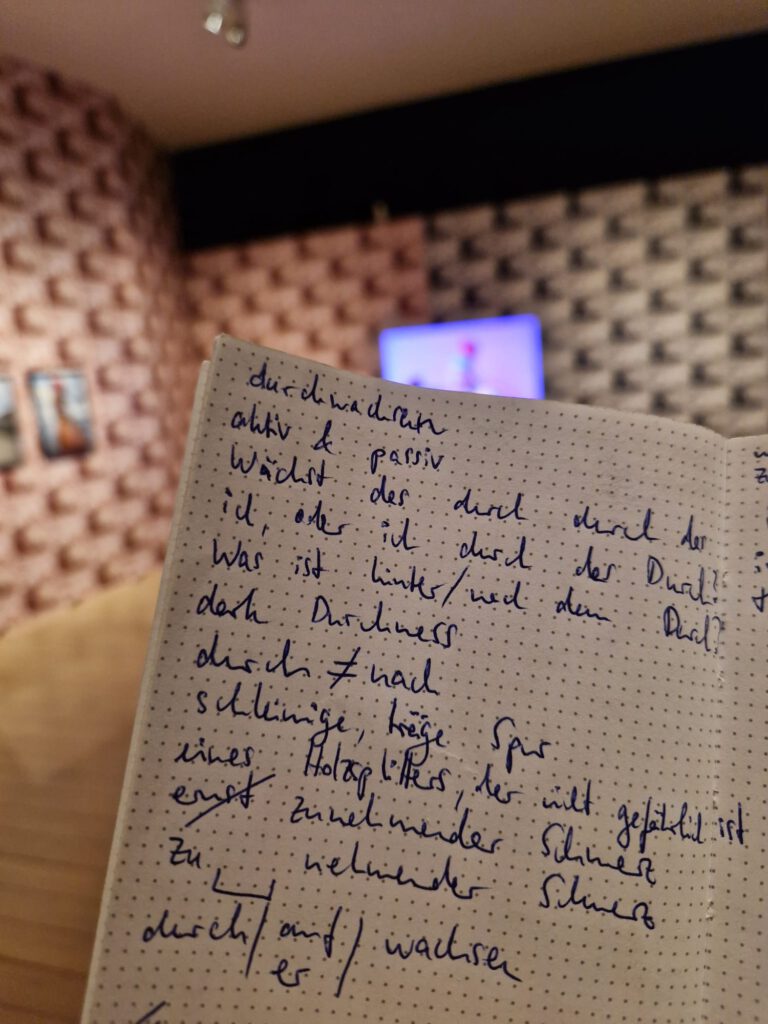 durchwachsen
aktiv & passiv
Wächst das durch durch das
ich, oder ich durch das Durch?
Was ist hinter/nach dem Durch?
dark Durchness
durch ≠ nach
schleimige, träge Spur
eines Holzsplitters, der nicht gefährlich ist
ernst zunehmender Schmerz
zu nehmender Schmerz
durch/auf/wachsen
er